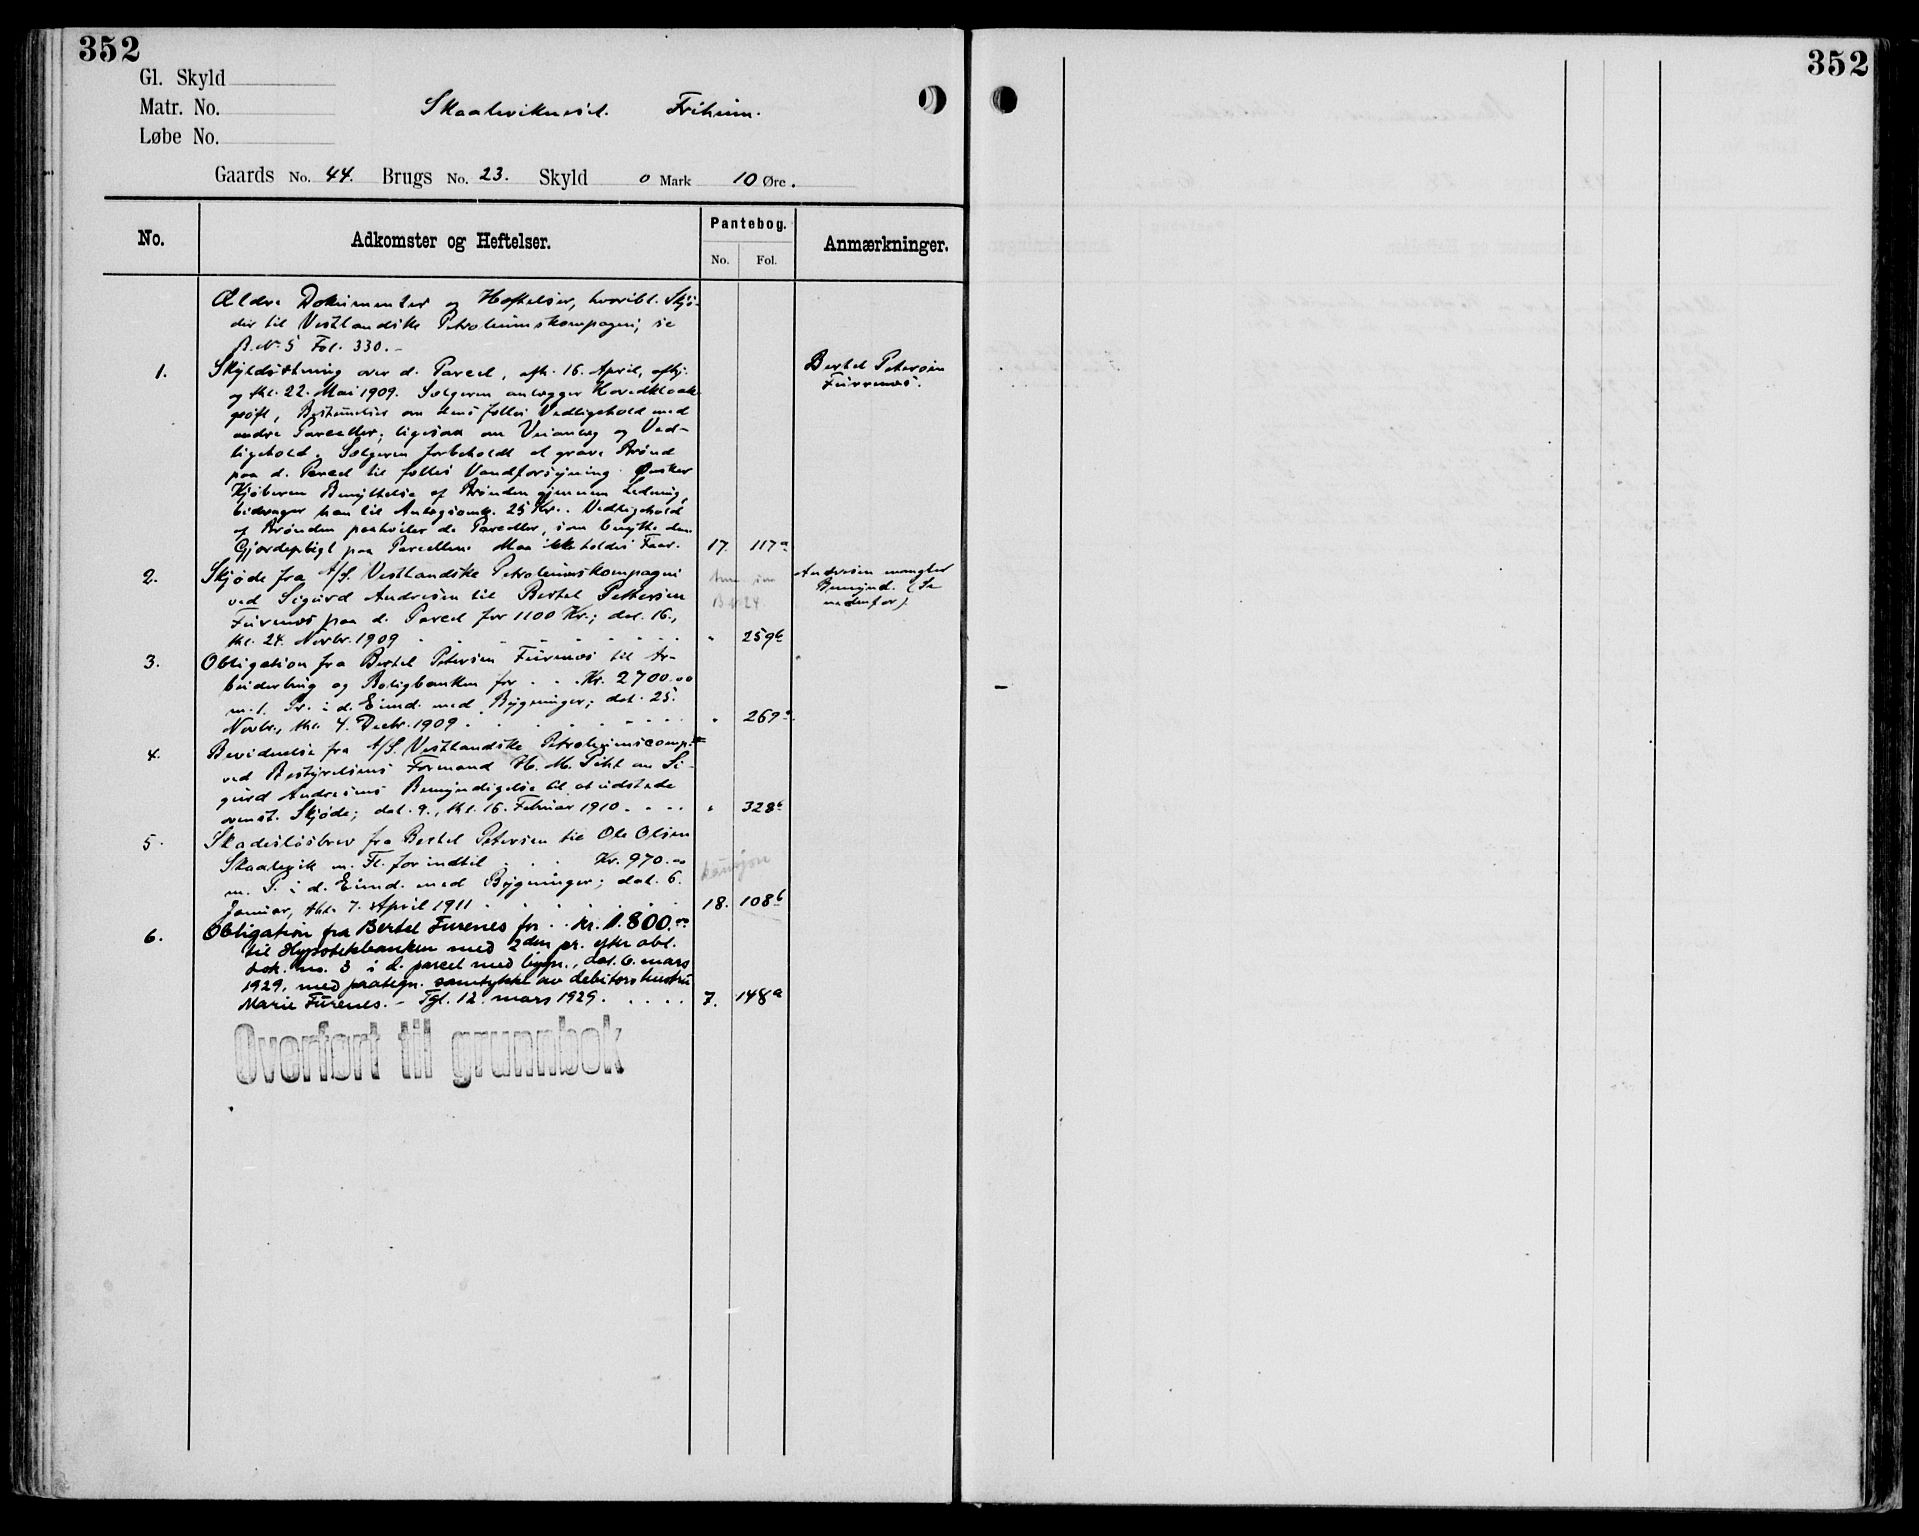 352
352
Gl. Skyld
Matr. No.
Skaalevikneset. Friheim.
Løbe No.
Gaards No. 44. Brugs No. 23. Skyld 0 Mark 10 Øre.
No.
Adkomster og Heftelser.
Pantebog.
No. Fol.
Anmærkninger.
Ældre Dokumenter og Heftelser, hvoribl. Skjø-
der til Vestlandske Petroleumskompagni, se
B. No 5 Fol. 330.-
1. Skyldsætning over d. Parcel, afh. 16. April, afhj.
og thl. 22. Mai 1909. Sælgeren anlægger Hovedkloak-
grøft, Bestemmelser om dens fælles Vedligehold med
andre Parceller; ligesaa om Veianlæg og Ved-
ligehold. Sælgeren forbeholdt at grave Brønd
paa d. Parcel til fælles Vandforsyning. Ønsker
Kjøberen Benyttelse af Brønden gjennem Ledning,
bidrager han til Anlægsomk. 25 Kr.. Vedligehold
af Brønden paahviler de Parceller, som benytte den.
Gjerdepligt paa Parcellen. Maa ikke holdes Faar. 17. 117a
Bertel Petersen
Furenes.
2. Skjøde fra A/S. Vestlandske Petroleumskompagni
ved Sigurd Andresen til Bertel Pettersen
Furenes paa d. Parcel for 1100 Kr.; dat. 16.,
thl. 24. Novbr. 1909 . . . . . . . " 259b
B no 24
Andresen mangler
Bemynd. (Se
nedenfor).
3. Obligation fra Bertel Petersen Furenes til Ar-
beiderbrug og Boligbanken for . . . Kr. 2700.00
m. 1. Pr. i d. Eiend. med Bygninger; dat. 25.
Novbr., thl. 4. Decbr. 1909 . . . . . . . " 269a
4. Bevidnelse fra A/S. Vestlandske Petroleumscomp.
ved Bestyrelsens Formand H. M. om Si-
gurd Andresens Bemyndigelse til at udstede
ovenst. Skjøde; dat. 9., thl. 16. Februar 1910 . . . . " 328b
5. Skadesløsbrev fra Bertel Petersen til Ole Olsen
Skaalevik m. Fl. for indtil . . . Kr. 970.00
m. P. i d. Eiend. med Bygninger; dat. 6.
Januar, thl. 7. April 1911 . . . . . . 18. 108b
6. Obligation fra Bertel Furenes for . . kr. 1.800.00
til Hypotekbanken med 2den pr. efter obl.
dok. no. 3 i d. parcel med bygn., dat. 6. mars
1929, med paategn. samtykke av debitors hustru
Marie Furenes. - Tgl. 12. mars 1929. . . . . 7. 148a
Overført til grunnbok